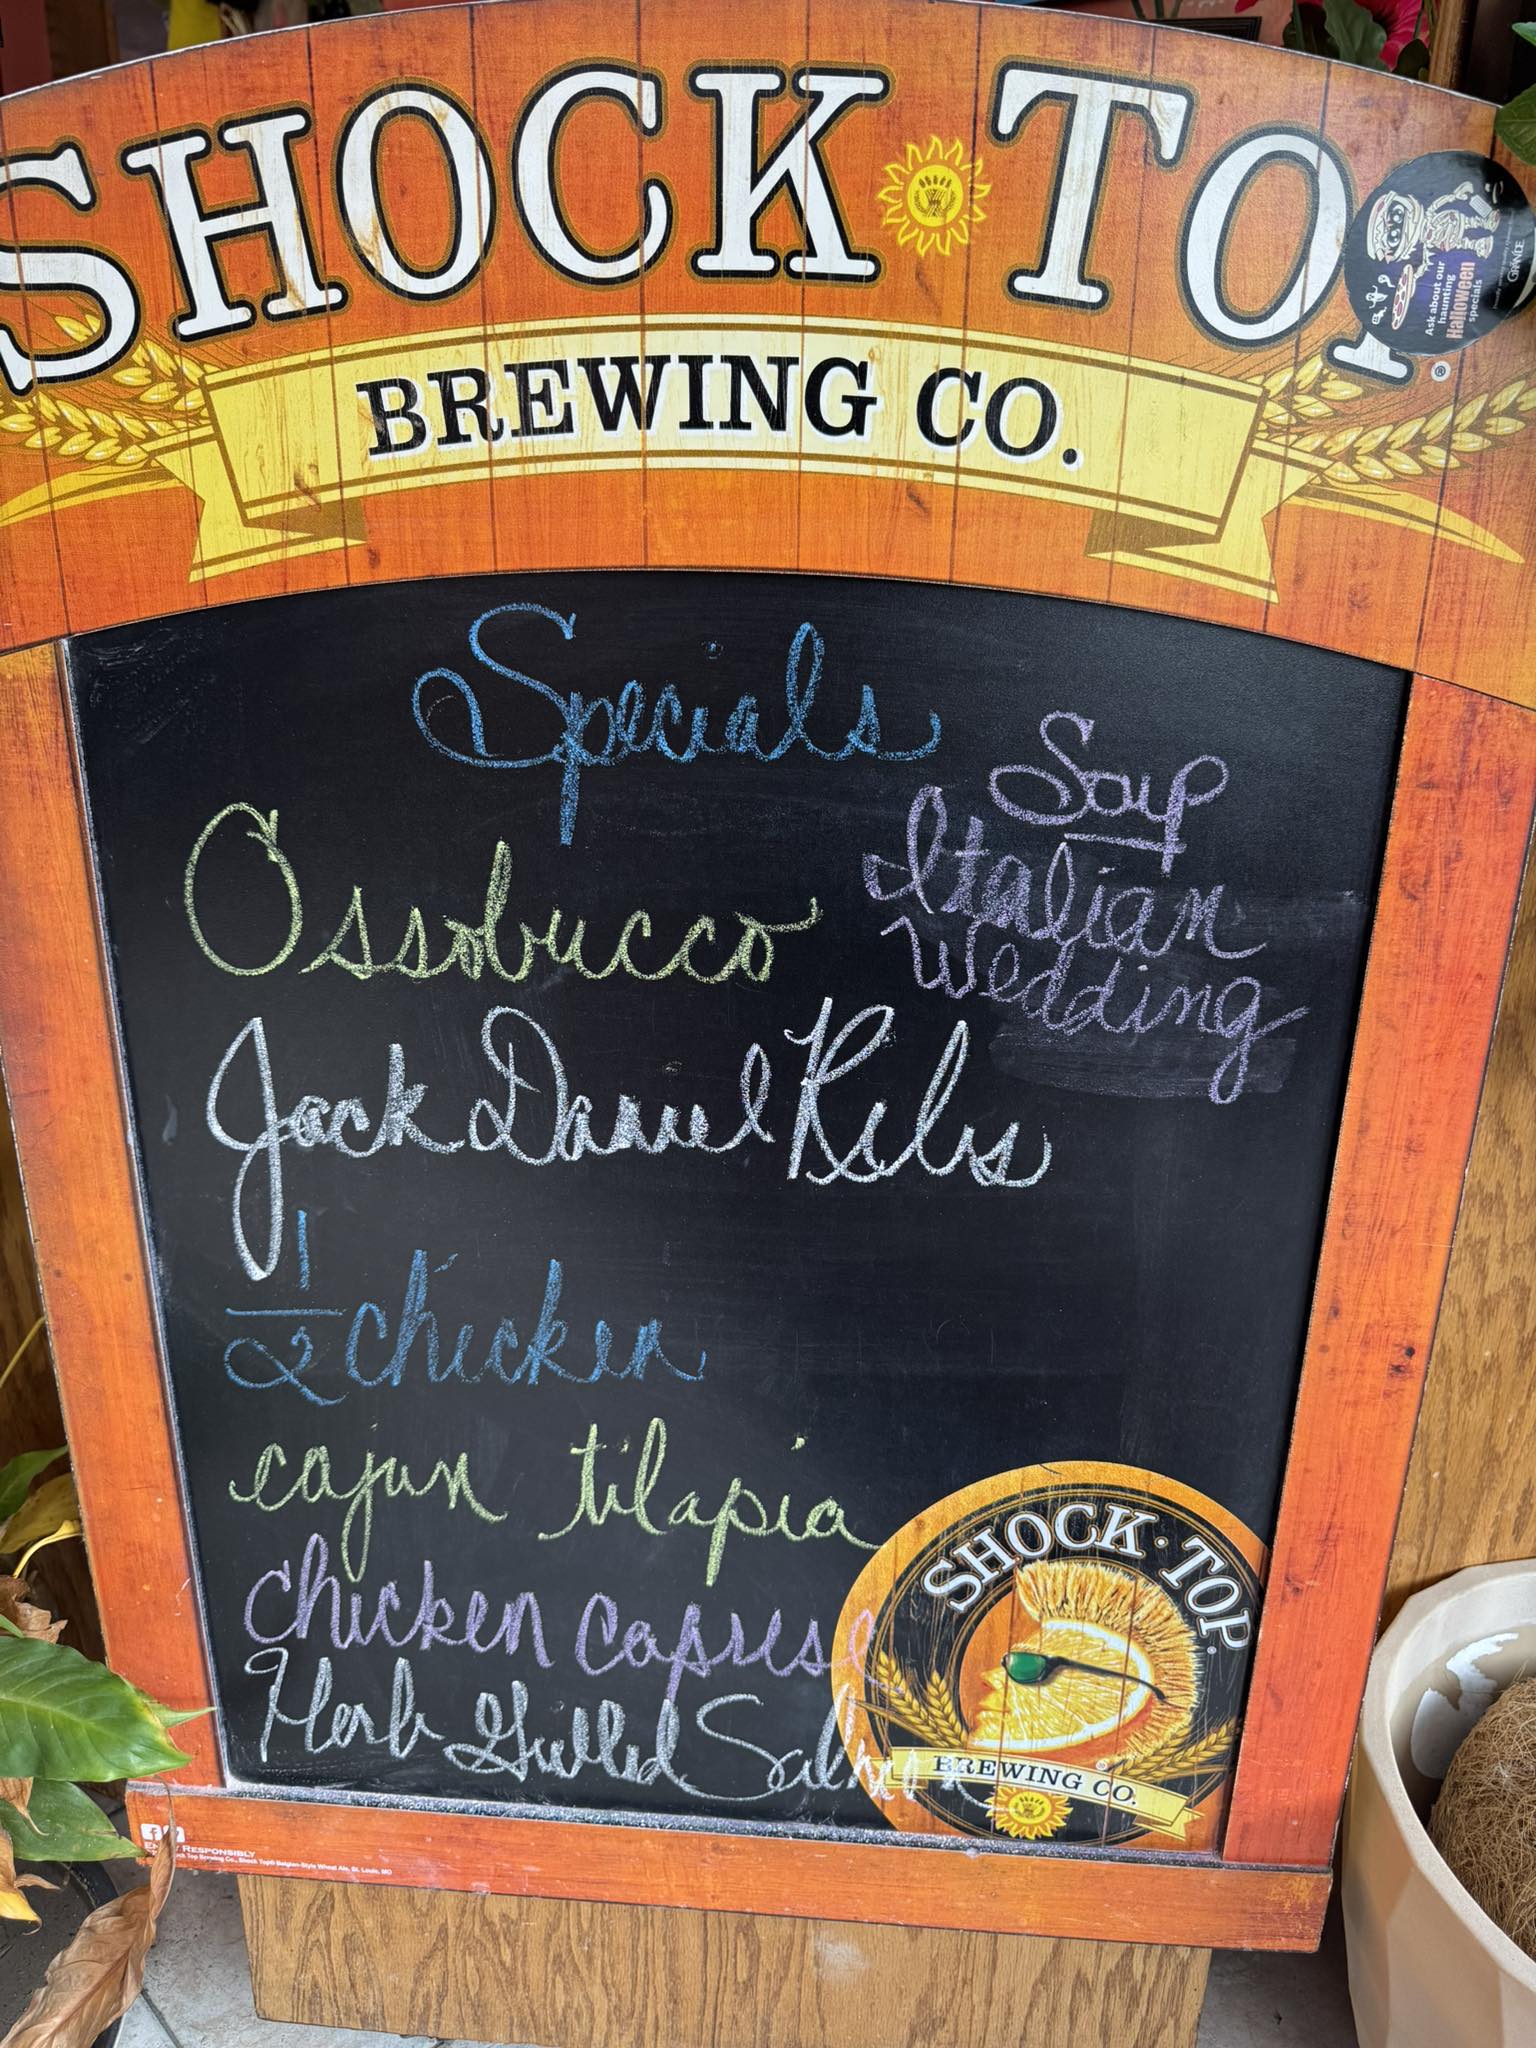 SHOCK TOP®
BREWING CO.
Ask about our
haunting
Halloween
specials
GRANDE
Specials
Soup
Italian
Wedding
Ossobucco
Jack Daniel Ribs
1/2 chicken
cajun tilapia
chicken caprese
Herb Grilled Salmon
SHOCK TOP®
BREWING CO.®
RESPONSIBLY
Top Brewing Co., Shock Top® Belgian-Style Wheat Ale, St. Louis, MO